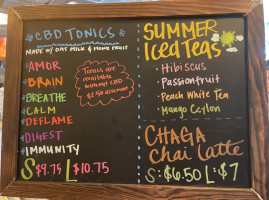 CBD TONICS
MADE W/ OAT MILK & MONK FRUIT
AMOR
BRAIN
BREATHE
CALM
DEFLAME
DIGEST
IMMUNITY
S $9.75 L $10.75
Tonics are
available
without CBD
$1.50 discount
SUMMER
Iced Teas
• Hibiscus
• Passionfruit
• Peach White Tea
• Mango Ceylon
CHAGA
Chai Latte
S: $6.50 L: $7